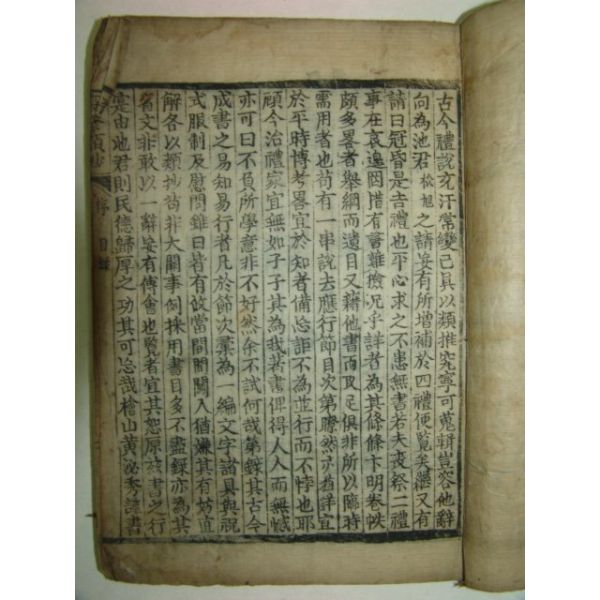 古今禮說充汗常變已具以類推究寧可蒐輯豈容他辭
向為池君松旭之請妄有所增補於四禮便覽矣繼又有
請曰冠昏是吉禮也平心求之不患無書若夫喪祭二禮
事在哀遑固惜有書難檢况乎詳者為其條條卞明卷帙
頗多畧者舉綱而遺目又藉他書而取足俱非所以臨時
需用者也苟有一串說去應行節目次第瞭然亦酋詳宜
於平時博考畧宜於知者備忘詎不為並行而不悖也耶
顧今治禮家宜無如子子其為我著書俾得人人而無憾
亦可曰不負所學意非不好然余不試何哉第錄其古今
成書之易知易行者凡於節次彙為一編文字諸具與祝
式服制及慰問雖曰皆有攸當間間闖入猶嫌其有妨直
解各以類抄苟非大關事例採用書目多不盡錄亦為其
省文非敢以一辭妄有傅會也覽者宜其恕原玆書之行
寔由池君則民德歸厚之功其可忘哉檜山黃泌秀謹書
序 目錄